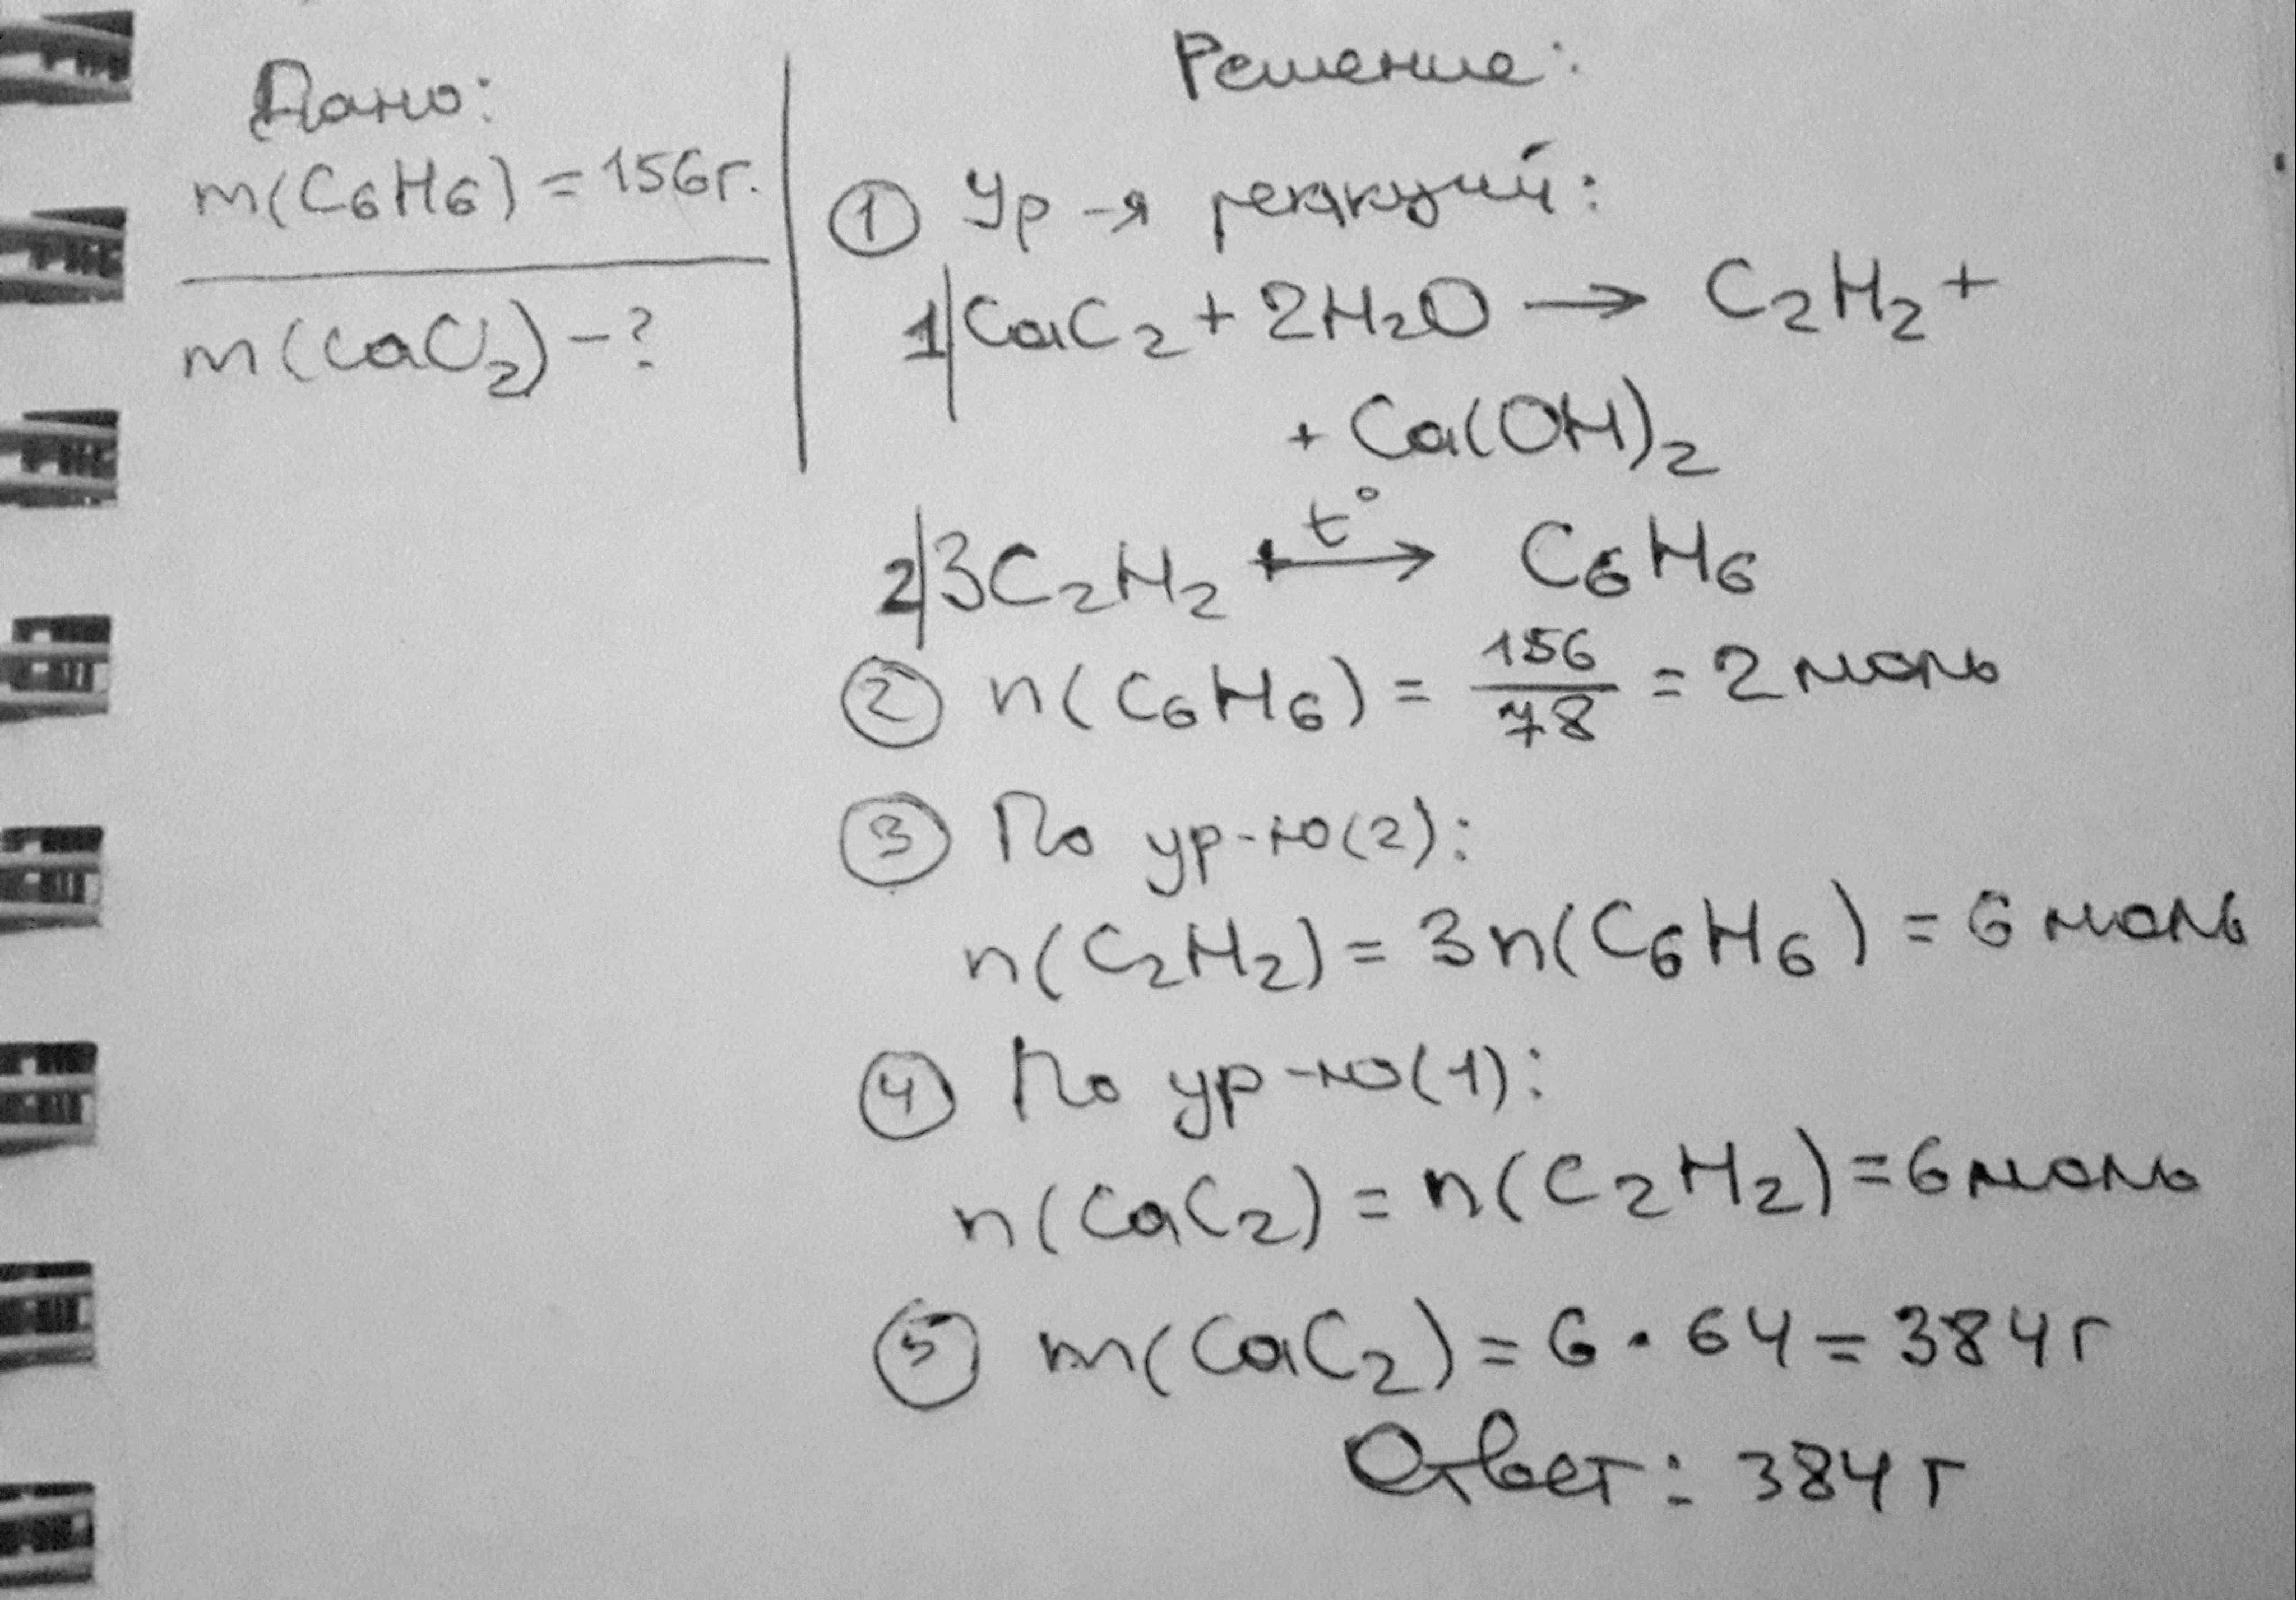 Дано:
m(C₆H₆) = 156г.
m(CaC₂) - ?
Решение:
① Ур-я реакций:
1| CaC₂ + 2H₂O → C₂H₂ +
+ Ca(OH)₂
2| 3C₂H₂ —t°→ C₆H₆
② n(C₆H₆) = 156/78 = 2 моль
③ По ур-ю(2):
n(C₂H₂) = 3n(C₆H₆) = 6 моль
④ По ур-ю(1):
n(CaC₂) = n(C₂H₂) = 6 моль
⑤ m(CaC₂) = 6 · 64 = 384 г
Ответ: 384 г